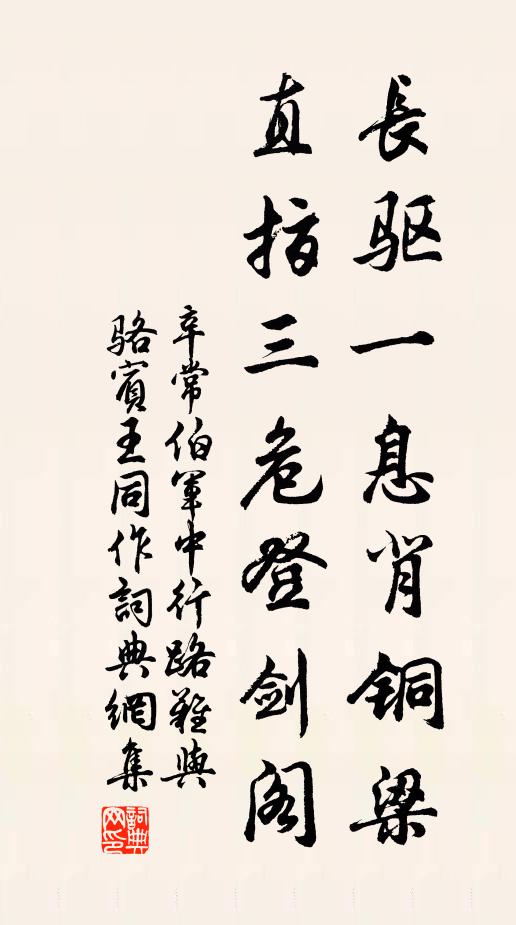 長驱一息背铜梁
直指三危登剑阁
辛常伯军中行路難與
骆賓王同作詞典網集
詞典網印